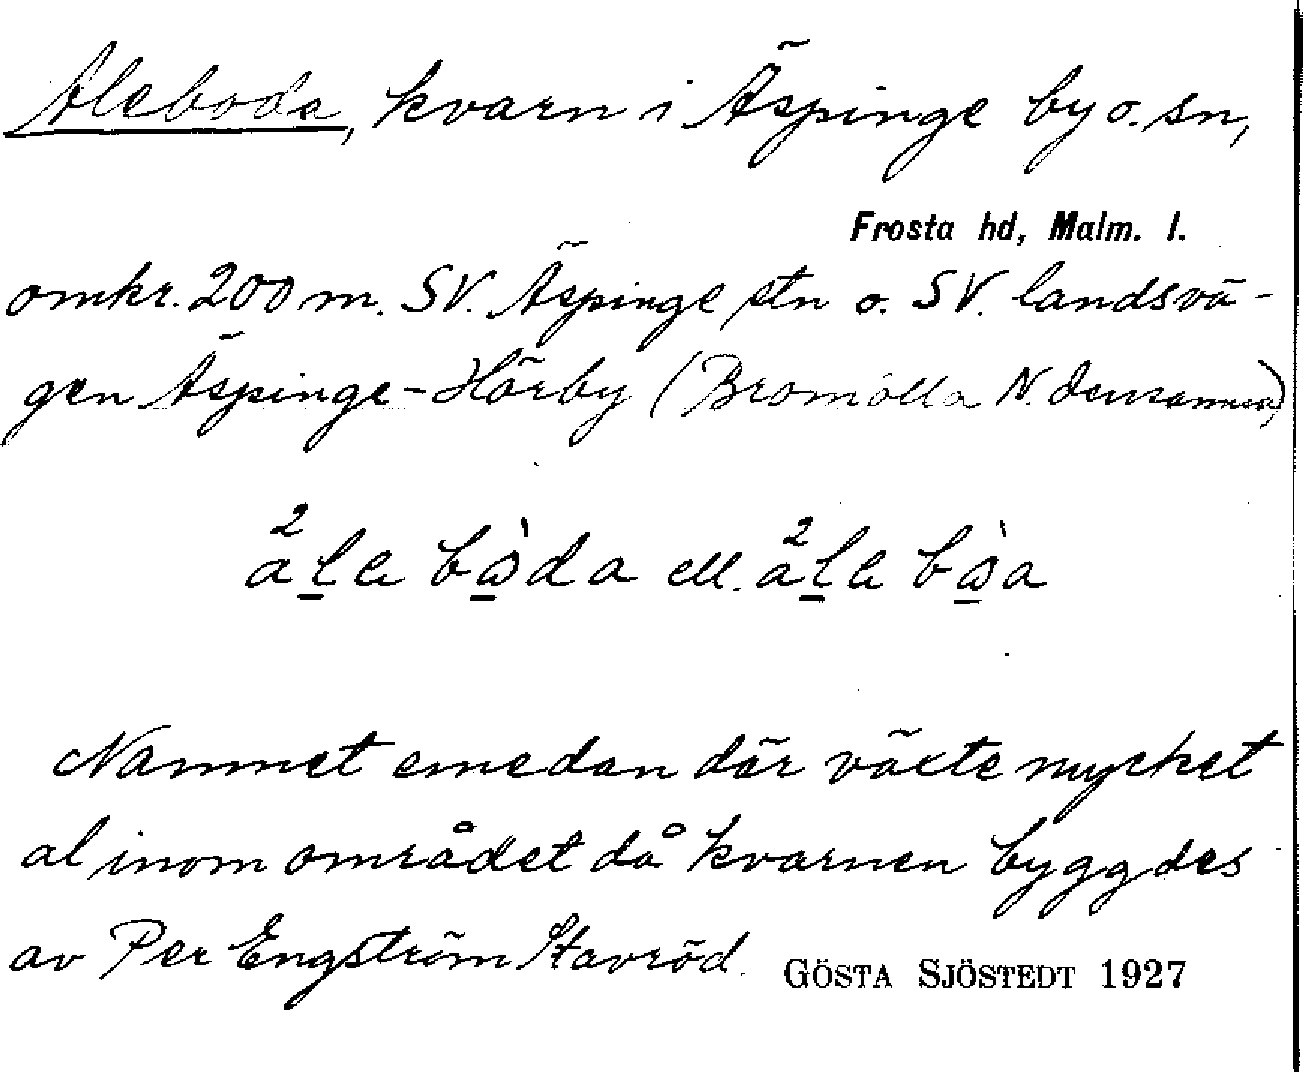 Aleboda, kvarn i Äspinge by o. sn,
Frosta hd, Malm. l.
omkr. 200 m. SV. Äspinge stn o. SV. landsvä-
gen Äspinge-Hörby (Bromölla N. densamma)
ell.
Namnet emedan där växte mycket
al inom området då kvarnen byggdes
av Per Engström Stavröd.
GÖSTA SJÖSTEDT 1927